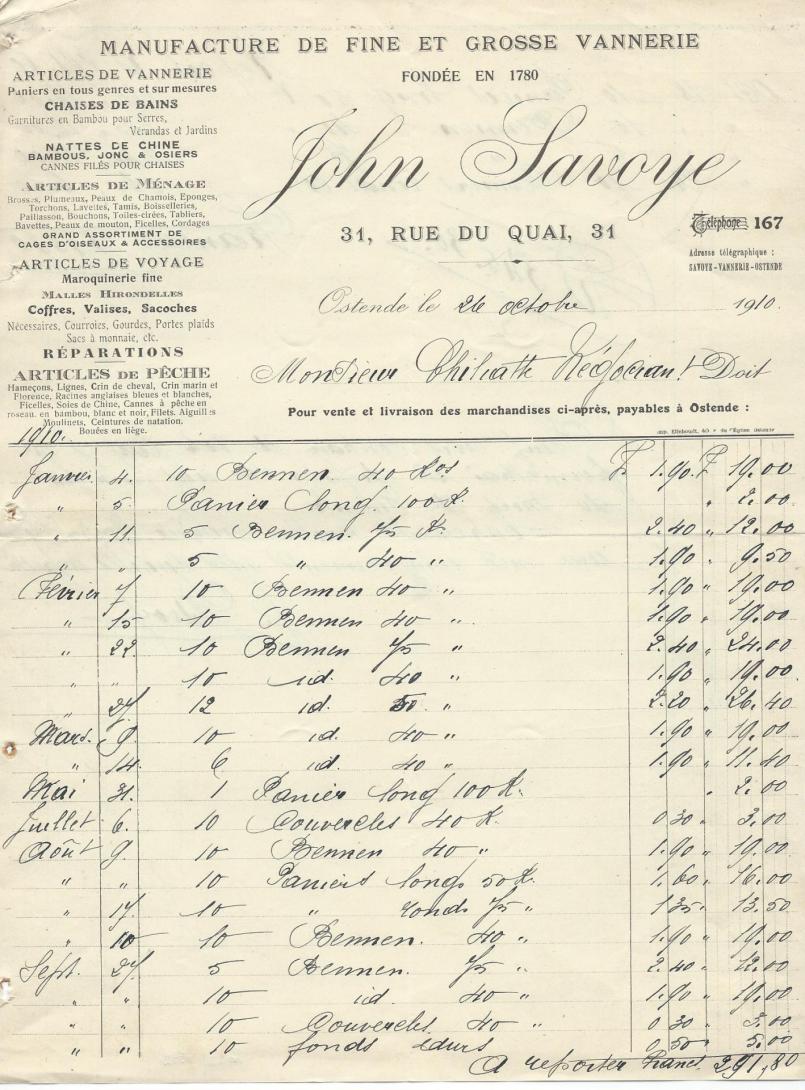 MANUFACTURE DE FINE ET GROSSE VANNERIE
FONDÉE EN 1780
ARTICLES DE VANNERIE
Paniers en tous genres et sur mesures
CHAISES DE BAINS
Garnitures en Bambou pour Serres,
Vérandas et Jardins
NATTES DE CHINE
BAMBOUS, JONC & OSIERS
CANNES FILÉS POUR CHAISES
ARTICLES DE MÉNAGE
Brosses, Plumeaux, Peaux de Chamois, Eponges,
Torchons, Lavettes, Tamis, Boisselleries,
Paillasson, Bouchons, Toiles-cirées, Tabliers,
Bavettes, Peaux de mouton, Ficelles, Cordages
GRAND ASSORTIMENT DE
CAGES D'OISEAUX & ACCESSOIRES
ARTICLES DE VOYAGE
Maroquinerie fine
MALLES HIRONDELLES
Coffres, Valises, Sacoches
Nécessaires, Courroies, Gourdes, Portes plaids
Sacs à monnaie, etc.
RÉPARATIONS
ARTICLES DE PÊCHE
Hameçons, Lignes, Crin de cheval, Crin marin et
Florence, Racines anglaises bleues et blanches,
Ficelles, Soies de Chine, Cannes à pêche en
roseau, en bambou, blanc et noir, Filets, Aiguilles
Moulinets, Ceintures de natation.
Bouées en liège.
John Savoye
31, RUE DU QUAI, 31
Téléphone 167
Adresse télégraphique :
SAVOYE-VANNERIE-OSTENDE
Ostende le 26 octobre 1910.
Monsieur Négociant Doit
Pour vente et livraison des marchandises ci-après, payables à Ostende :
1910.
Janvier 4. 10 Bennen 40 Kos F. 1.90 F. 19.00
" 5. Panier long. 100 K. " 2.00
" 11. 5 Bennen 75 K. 2.40 " 12.00
" " 5 " 40 " 1.90 " 9.50
Février 7 10 Bennen 40 " 1.90 " 19.00
" 15 10 Bennen 40 " 1.90 " 19.00
" 22 10 Bennen 75 " 2.40 " 24.00
" " 10 id. 40 " 1.90 " 19.00
" 27 12 id. 50 " 2.20 " 26.40
Mars. 9. 10 id. 40 " 1.90 " 19.00
" 14. 6 id. 40 " 1.90 " 11.40
Mai 31. 1 Panier long 100 K. " 2.00
Juillet 6. 10 Couvercles 40 K. 0 30 " 3.00
Août 9. 10 Bennen 40 " 1.90 " 19.00
" " 10 Paniers longs 50 K. 1.60 " 16.00
" 17. 10 " ronds 75 " 1 35 " 13.50
" 10 10 Bennen. 40 " 1.90 " 19.00
Sept. 27 5 Bennen. 75 " 2.40 " 12.00
" " 10 id. 40 " 1.90 " 19.00
" " 10 Couvercles. 40 " 0 30 " 3.00
" " 10 fonds 0 50 " 5.00
A reporter Francs. 291,80